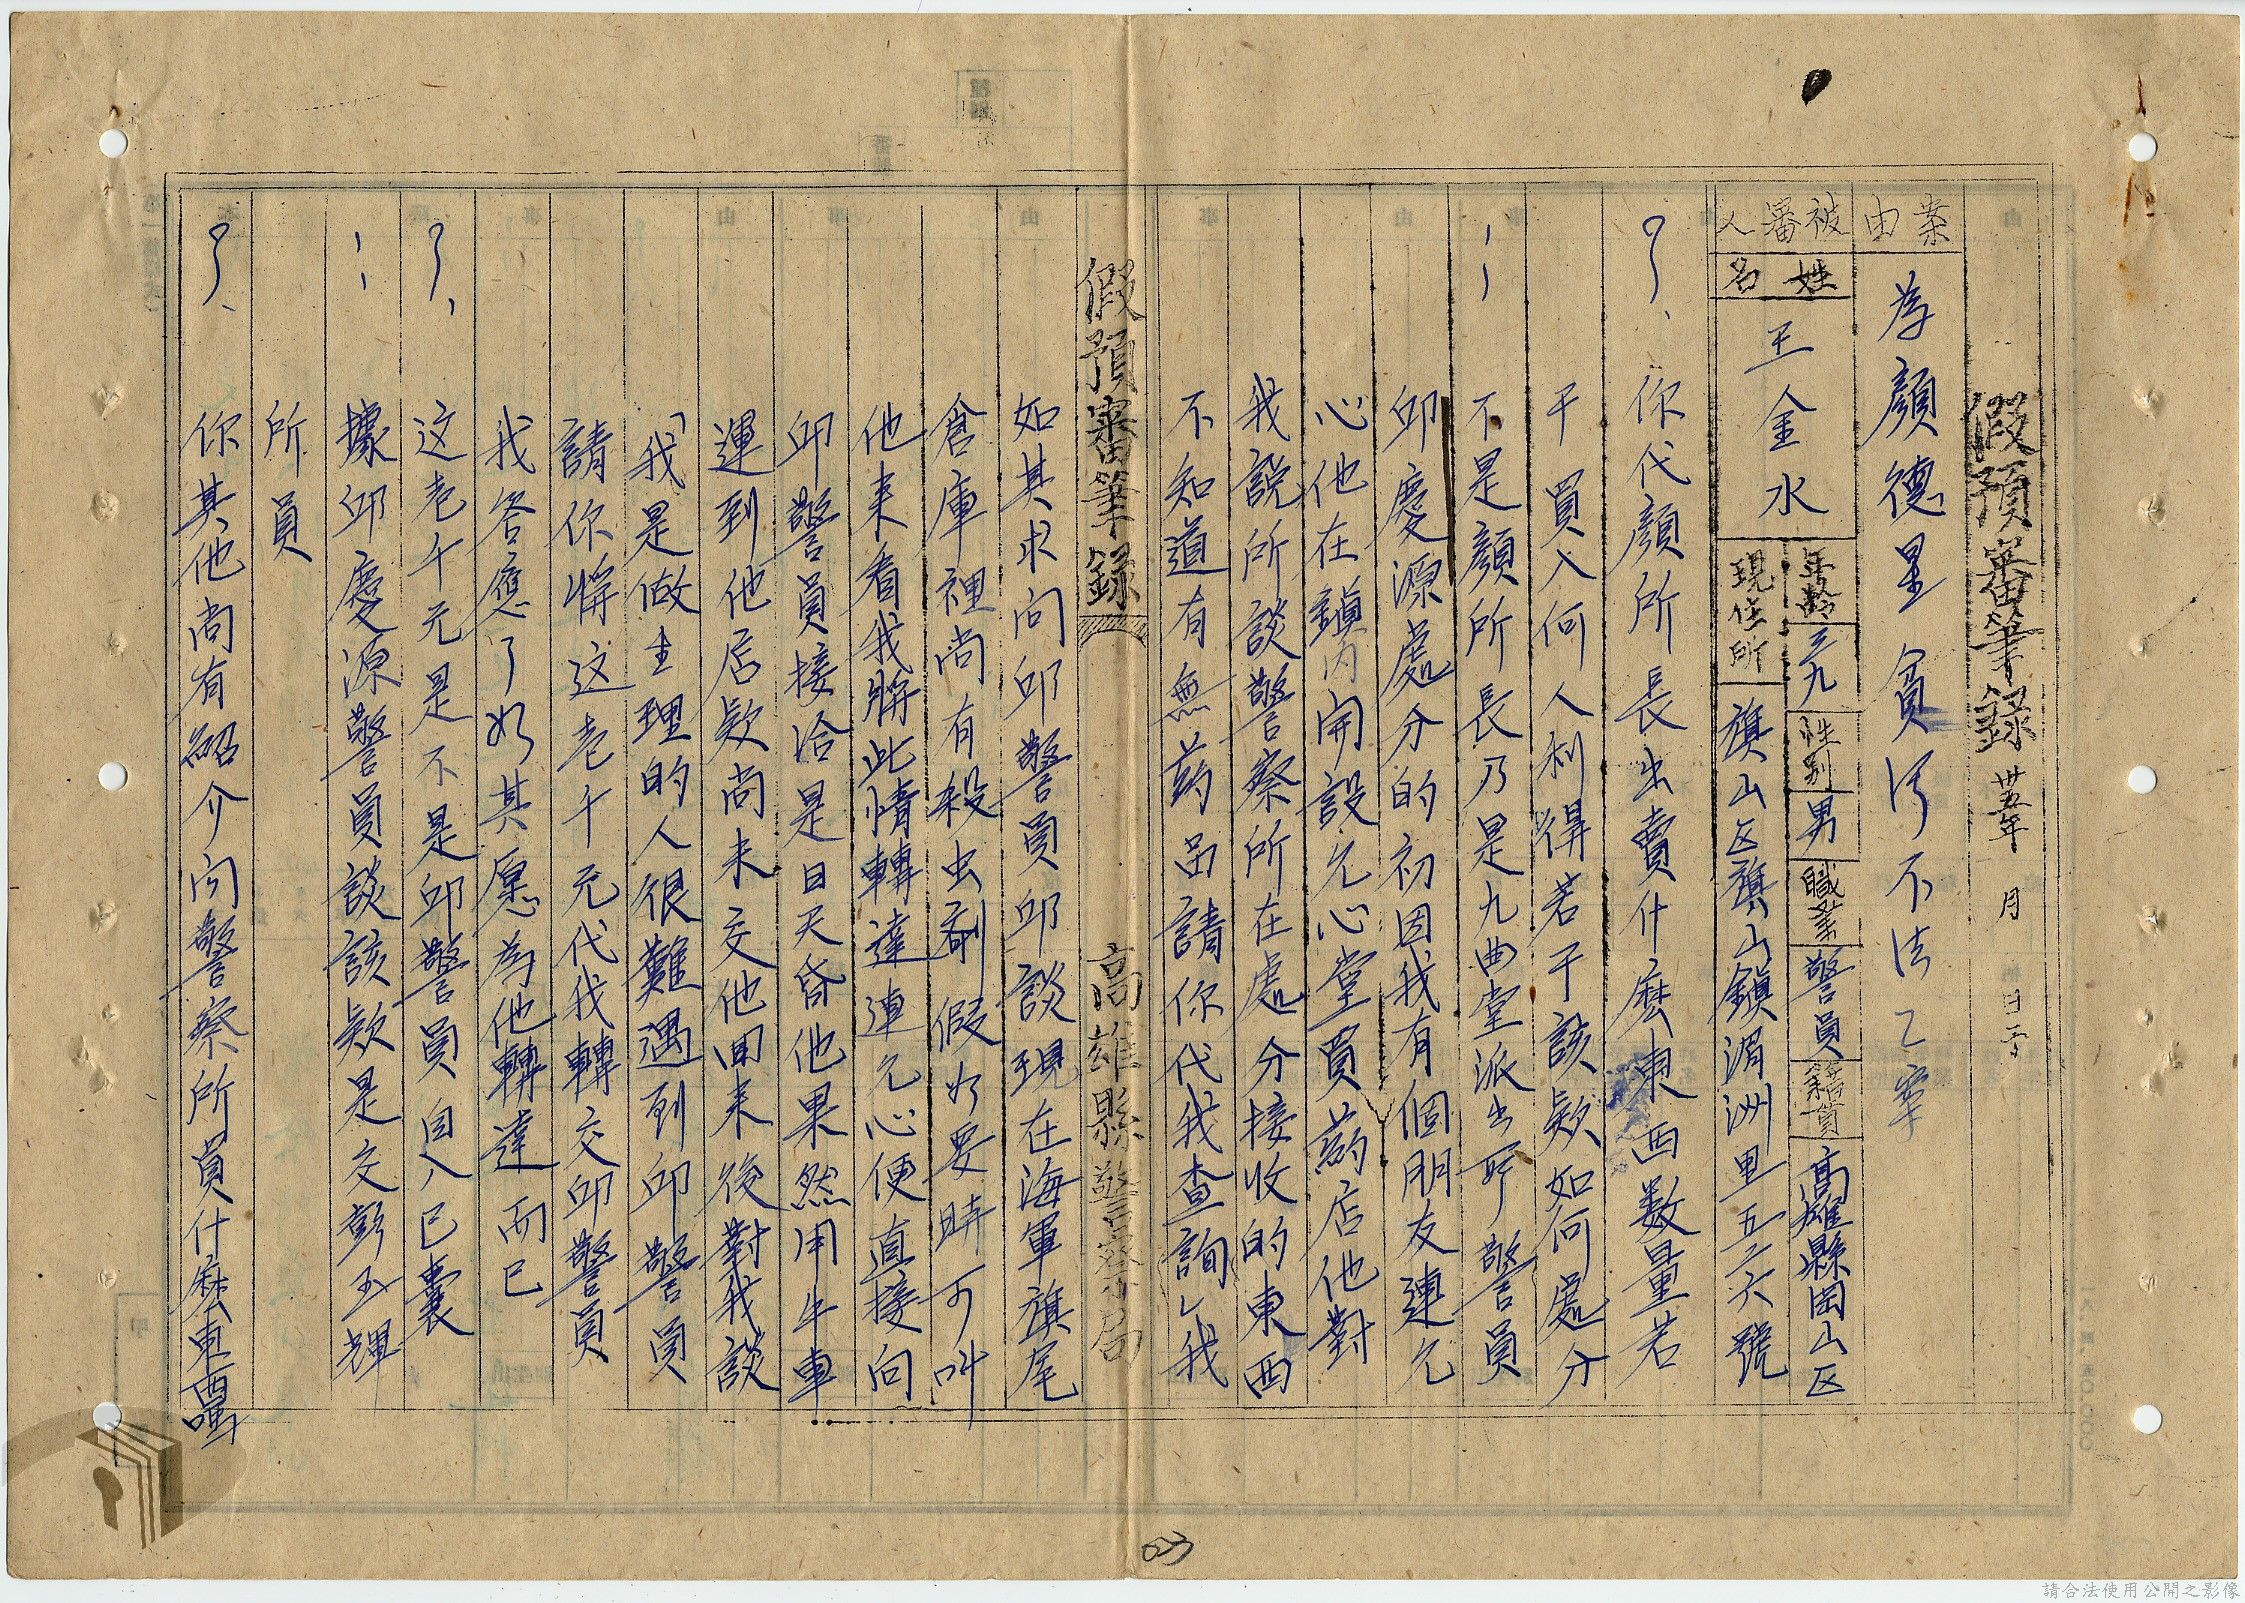 假預審筆錄 卅五年 月 日
案由 為顏德星貪污不法乙案
被審人 姓名 王金水 年齡 三九 性別 男 職業 警員 籍貫 高雄縣岡山区
現住所 旗山区旗山鎮湄洲里五二六號
?、你代顏所長出賣什麽東西数量若
干買入何人利得若干該欵如何處分
:不是顏所長乃是九曲堂派出所警員
邱慶源處分的初因我有個朋友連允
心他在鎮内開設允心堂買葯店他對
我説所談警察所在處分接收的東西
不知道有無葯品請你代我查詢乙我
假預審筆錄 高雄縣警察局
如其求向邱警員邱談現在海軍旗尾
倉庫裡尚有殺虫劑假如要時可叫
他来看我將此情轉達連允心便直接向
邱警員接洽是日天昏他果然用牛車
運到他店欵尚未交他回来後對我談
「我是做生理的人很難遇到邱警員
請你將这老千元代我轉交邱警員
我答應了如其愿為他轉達而已
?、这老千元是不是邱警員自入已囊
:據邱慶源警員談該欵是交彭玉輝
所員
?、你其他尚有紹介向警察所買什麽東西嗎
023
請合法使用公開之影像